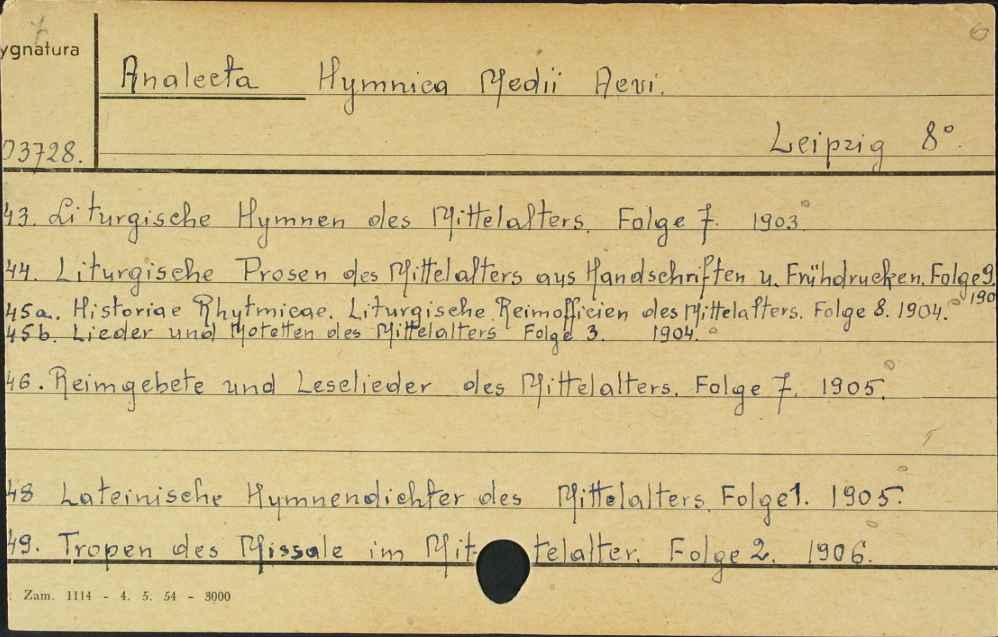 7 6
ygnatura
Analecta Hymnica Medii Aevi.
03728. Leipzig 8°.
43. Liturgische Hymnen des Mittelalters. Folge 7. 1903
44. Liturgische Prosen des Mittelalters aus Handschriften u. Frühdrucken. Folge 9.
190
45a. Historiae Rhytmicae. Liturgische Reimofficien des Mittelalters. Folge 8. 1904.
45b. Lieder und Motetten des Mittelalters Folge 3. 1904.
46. Reimgebete und Leselieder des Mittelalters. Folge 7. 1905.
48 Lateinische Hymnendichter des Mittelalters. Folge 1. 1905.
49. Tropen des Missale im Mit- telalter. Folge 2. 1906.
Zam. 1114 - 4. 5. 54 - 3000